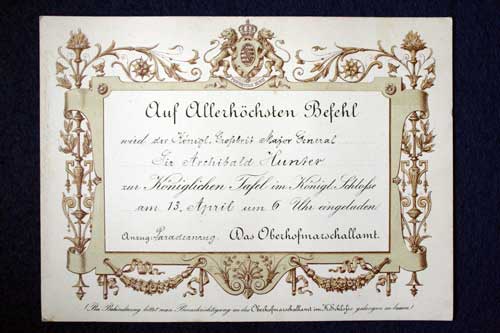 Auf Allerhöchsten Befehl
wird der Königl. Großbrit Major General
Sir Archibald Hunter
zur Königlichen Tafel im Königl. Schloße
am 13. April um 6 Uhr eingeladen
Anzug: Paradeanzug. Das Oberhofmarschallamt.
(Bei Behinderung bittet man Benachrichtigung an das Oberhofmarschallamt im K. Schloße gelangen zu lassen.)